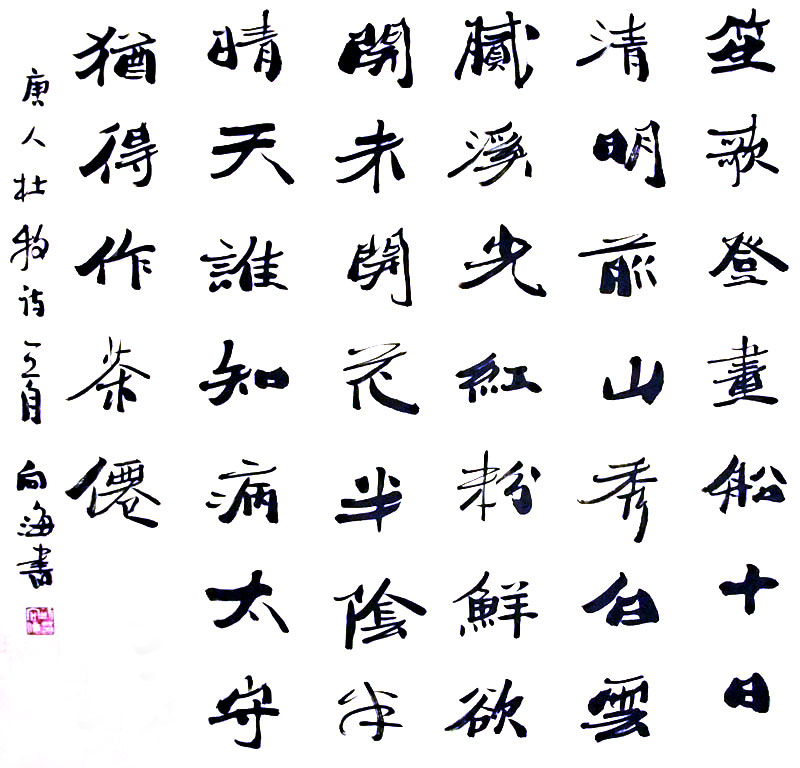 笙歌登畫船十日
清明前山秀白雲
膩溪光紅粉鮮欲
開未開花半陰半
晴天誰知病太守
猶得作茶僊
唐人杜牧诗一首 向海書